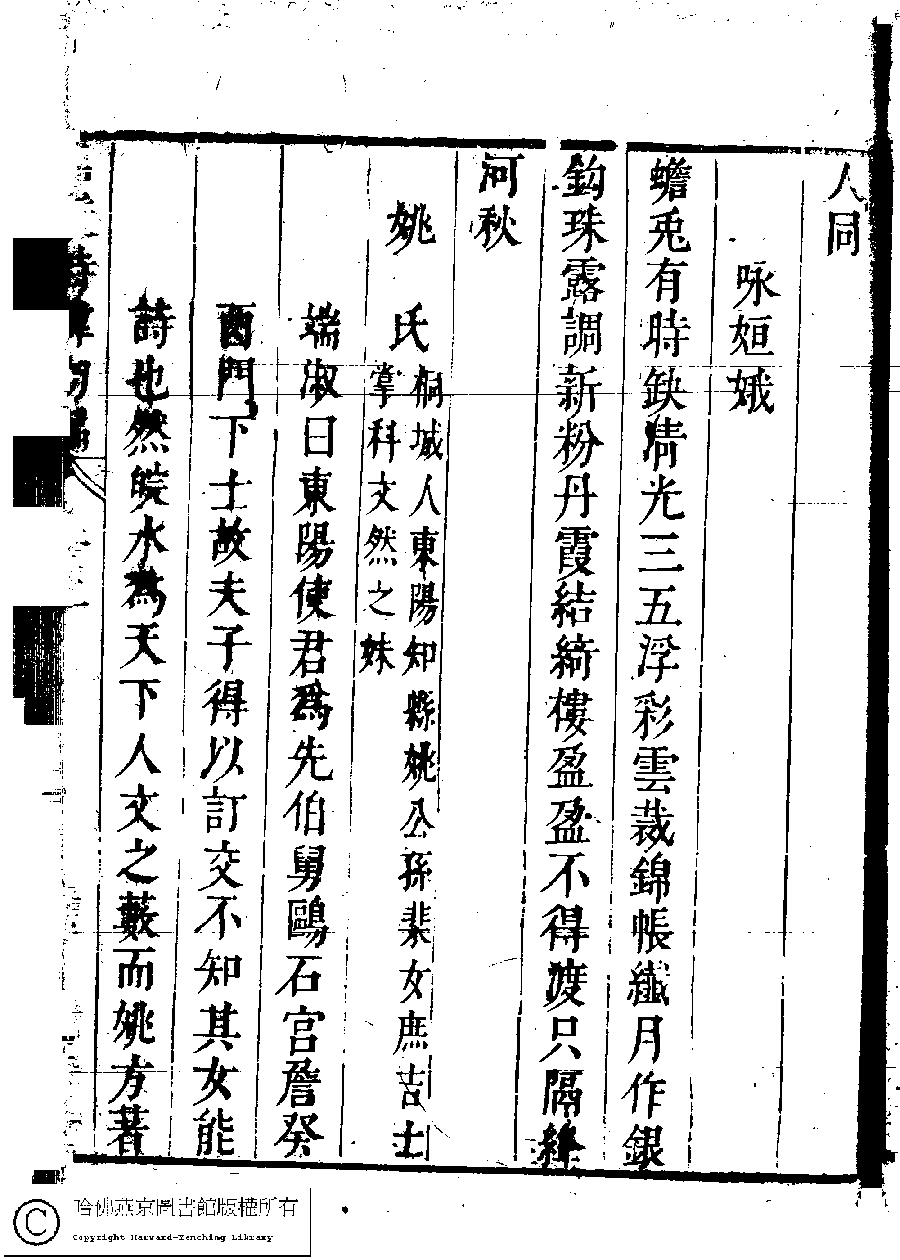 人同
咏姮娥
蟾兎有時缺清光三五浮彩雲裁錦帳纖月作銀
鈎珠露調新粉丹霞結綺樓盈盈不得渡只隔絳
河秋
姚氏
桐城人東陽知縣姚公孫棐女庶吉士
掌科文然之妹
端淑曰東陽使君爲先伯舅鷗石宫詹癸
酉門下士故夫子得以訂交不知其女能
詩也然皖水爲天下人文之藪而姚方著
哈佛燕京圖書館版權所有
Copyright Harvard-Yenching Library